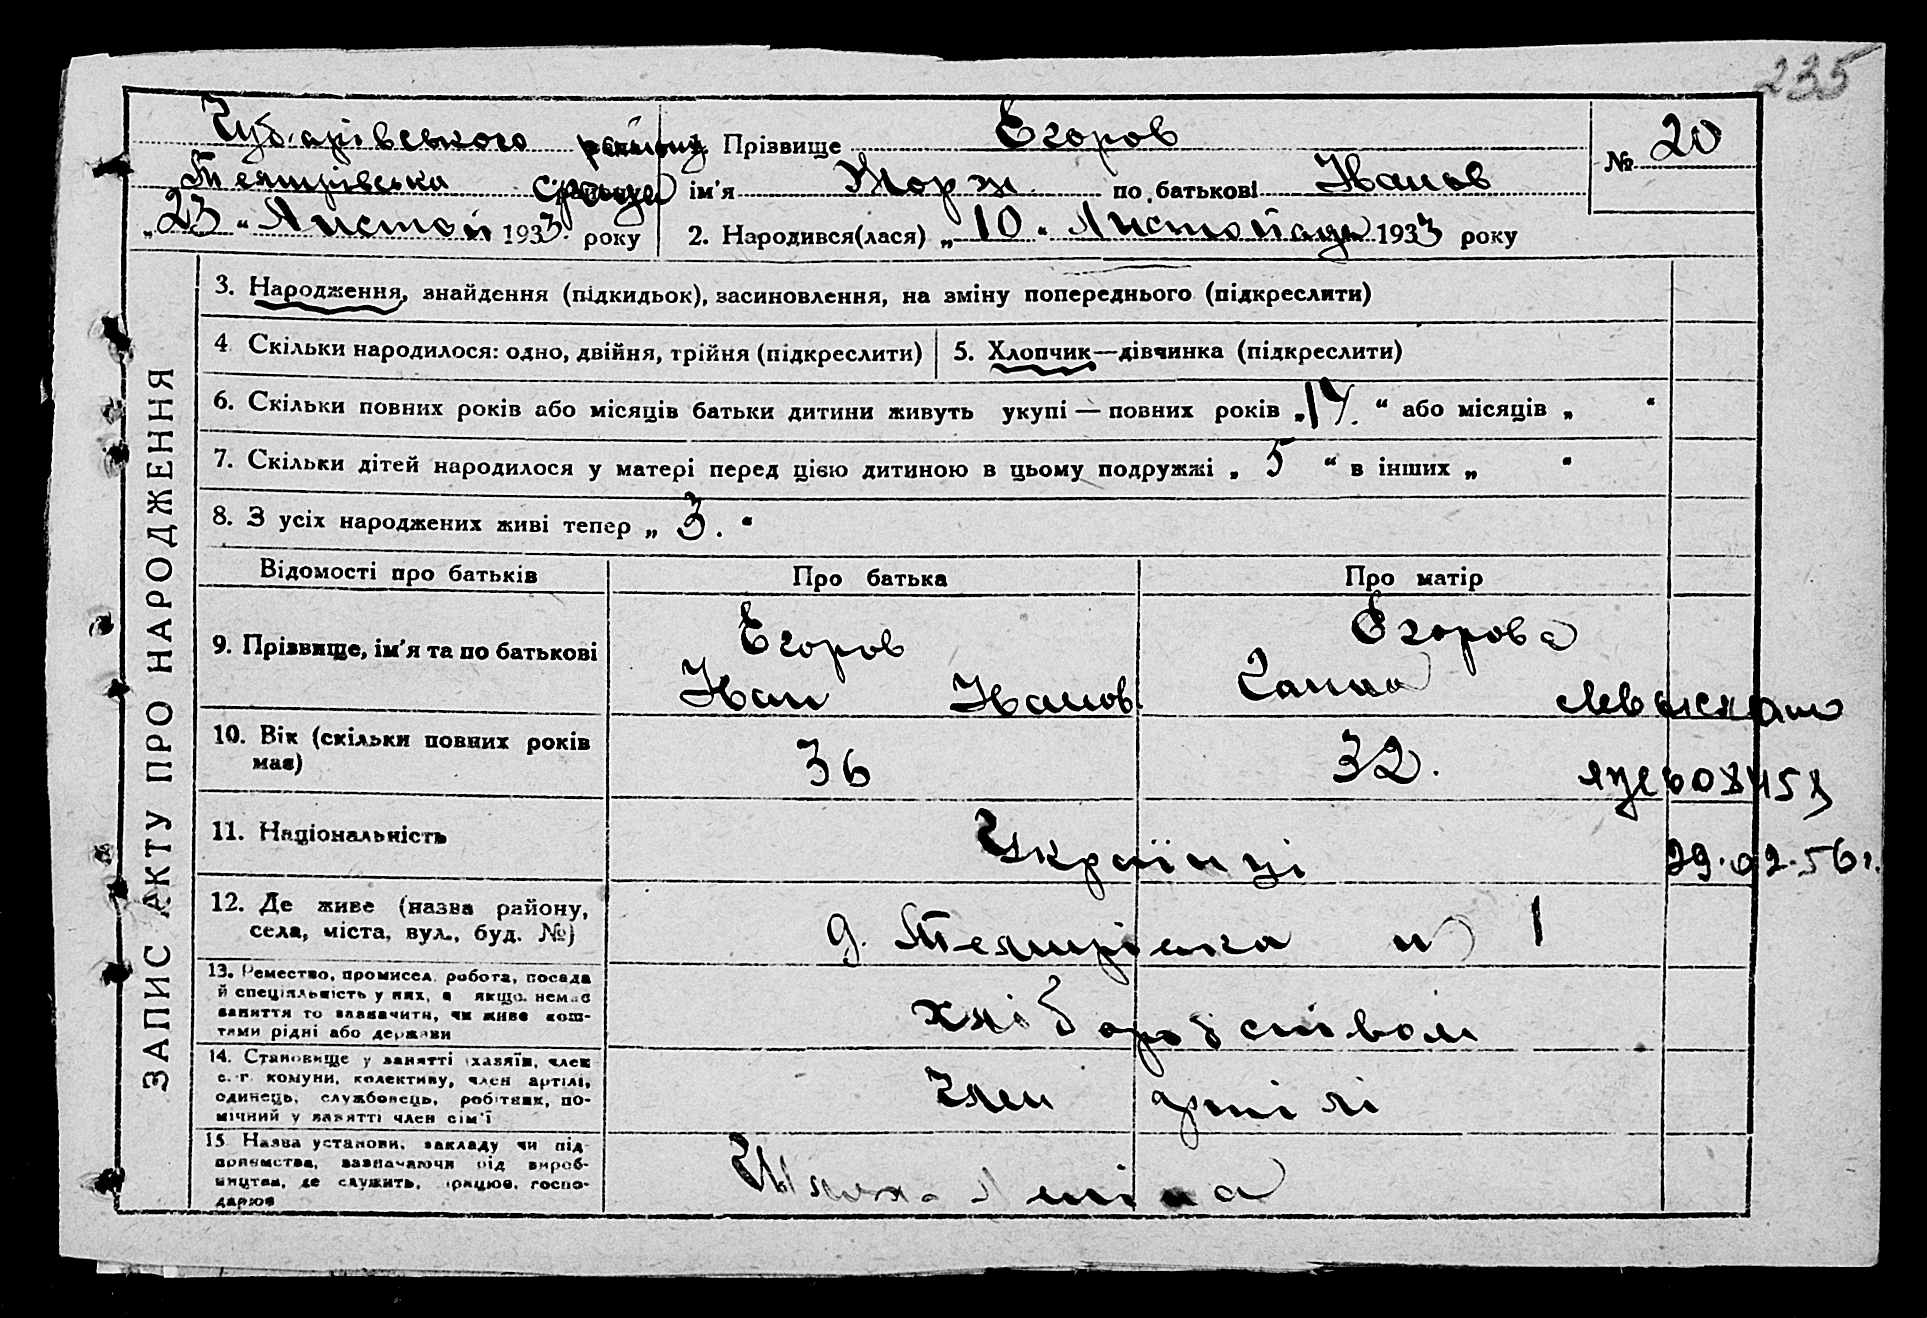 235
Чубарівського району Прізвище Егоров № 20
сільрада ім'я Жорж по батькові Іванов
„23“ Листоп 1933 року 2. Народився(лася) „10“ Листопада 1933 року
ЗАПИС АКТУ ПРО НАРОДЖЕННЯ
3. Народження, знайдення (підкидьок), засиновлення, на зміну попереднього (підкреслити)
4 Скільки народилося: одно, двійня, трійня (підкреслити) 5. Хлопчик—дівчинка (підкреслити)
6. Скільки повних років або місяців батьки дитини живуть укупі — повних років „14.“ або місяців „ “
7. Скільки дітей народилося у матері перед цією дитиною в цьому подружжі „ 5 “ в інших „ “
8. З усіх народжених живі тепер „ 3. “
Відомості про батьків Про батька Про матір
9. Прізвище, ім'я та по батькові Егоров Егорова
Іван Іванов Ганна
10. Вік (скільки повних років має) 36 32.
11. Національність Українці 29.02.56г.
12. Де живе (назва району,
села, міста, вул., буд. №) д. 1
13. Ремество, промисел, робота, посада
й спеціяльність у них, а якщо немає
заняття то зазначити, чи живе кош-
тами рідні або держави хліборобством
14. Становище у занятті (хазяїн, член
с.-г. комуни, колективу, член артілі,
одинець, службовець, робітник, по-
мічний у занятті член сім'ї Член артілі
15 Назва установи, закладу чи під-
приємства, зазначаючи рід вироб-
ництва, де служить, працює, госпо-
дарює